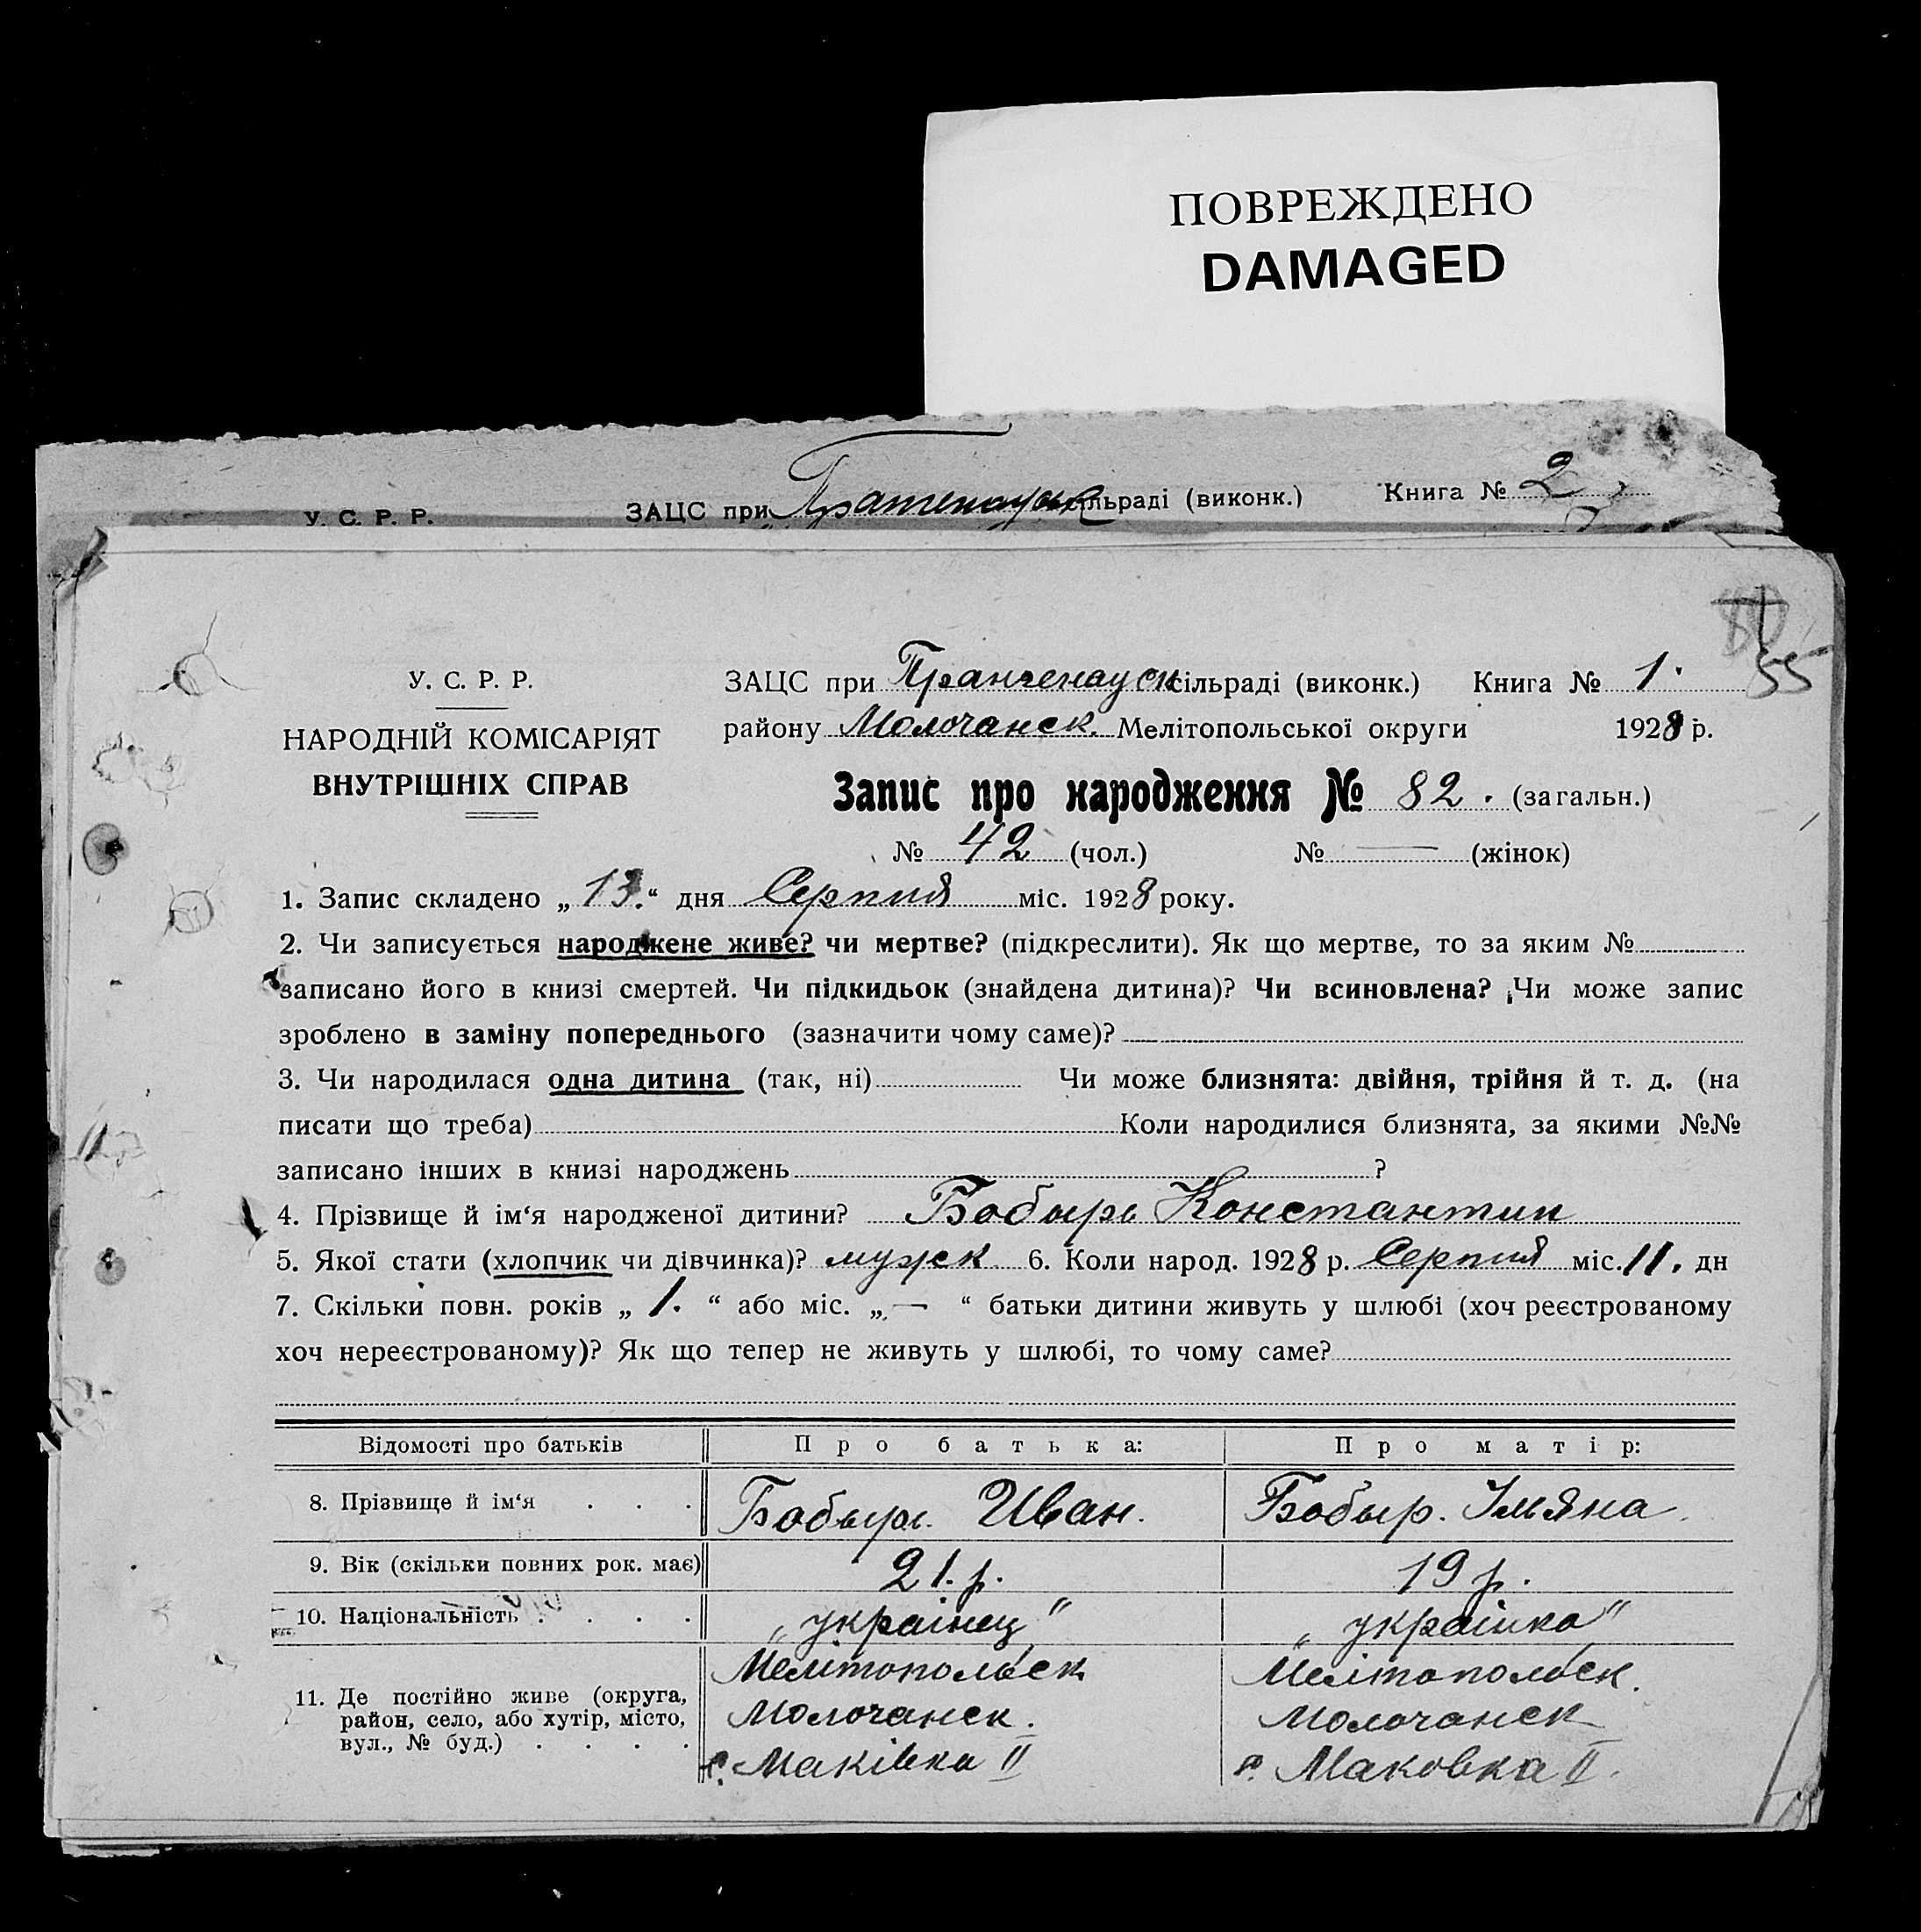 ПОВРЕЖДЕНО
DAMAGED
У. С. Р. Р. ЗАЦС при сільраді (виконк.) Книга № 2
У. С. Р. Р.
НАРОДНІЙ КОМІСАРІЯТ
ВНУТРІШНІХ СПРАВ
55
ЗАЦС при Прангенауск сільраді (виконк.) Книга № 1.
району Молочанск. Мелітопольської округи 1928 р.
Запис про народження № 82. (загальн.)
№ 42 (чол.) № — (жінок)
1. Запис складено „13.“ дня Серпня міс. 1928 року.
2. Чи записується народжене живе? чи мертве? (підкреслити). Як що мертве, то за яким №
записано його в книзі смертей. Чи підкидьок (знайдена дитина)? Чи всиновлена? Чи може запис
зроблено в заміну попереднього (зазначити чому саме)?
3. Чи народилася одна дитина (так, ні) Чи може близнята: двійня, трійня й т. д. (на
писати що треба) Коли народилися близнята, за якими №№
записано інших в книзі народжень ?
4. Прізвище й ім‘я народженої дитини? Бобырь Константин
5. Якої стати (хлопчик чи дівчинка)? мужск 6. Коли народ. 1928 р. Серпня міс. 11. дн
7. Скільки повн. років „ 1. “ або міс. „ — “ батьки дитини живуть у шлюбі (хоч реєстрованому
хоч нереєстрованому)? Як що тепер не живуть у шлюбі, то чому саме?
Відомості про батьків Про батька: Про матір:
8. Прізвище й ім‘я . . . Бобырь. Иван. Бобыр. Ульяна.
9. Вік (скільки повних рок. має) 21. р. 19 р.
10. Національність . . . . „украінец“ „украінка“
11. Де постійно живе (округа, район, село, або хутір, місто, вул., № буд.) . . . .
Мелітопольск Мелітопольск.
Молочанск. Молочанск
с. Маківка II с. Маковка II.